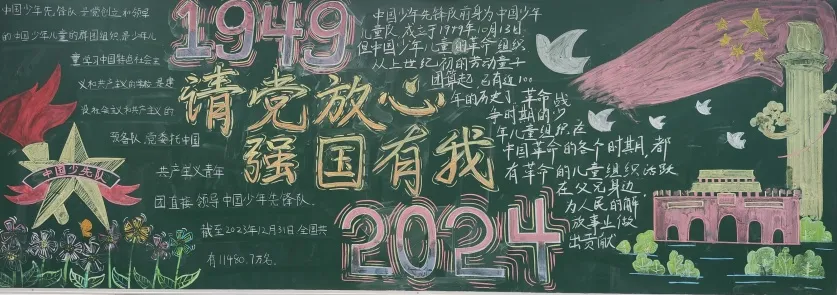 中国少年先锋队是党创立和领导
的中国少年儿童的群团组织是少年儿
童学习中国特色社会主
义和共产主义的学校是建
设社会主义和共产主义的
预备队.党委托中国
共产主义青年
团直接领导中国少年先锋队.
截至2023年12月31日全国共
有11480.7万名.
中国少先队
1949
请党放心
强国有我
2024
中国少年先锋队前身为中国少年
儿童队成立于1949年10月13日
但中国少年儿童的革命组织
从上世纪初的劳动童子
团算起已有近100
年的历史了.革命战
争时期的少
年儿童组织在
中国革命的各个时期,都
有革命的儿童组织活跃
在父兄身边
为人民的解
放事业做
出贡献